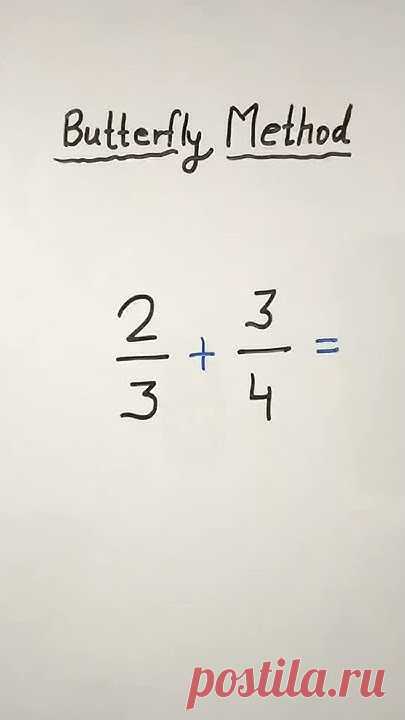 Butterfly Method
2/3 + 3/4 =
postila.ru